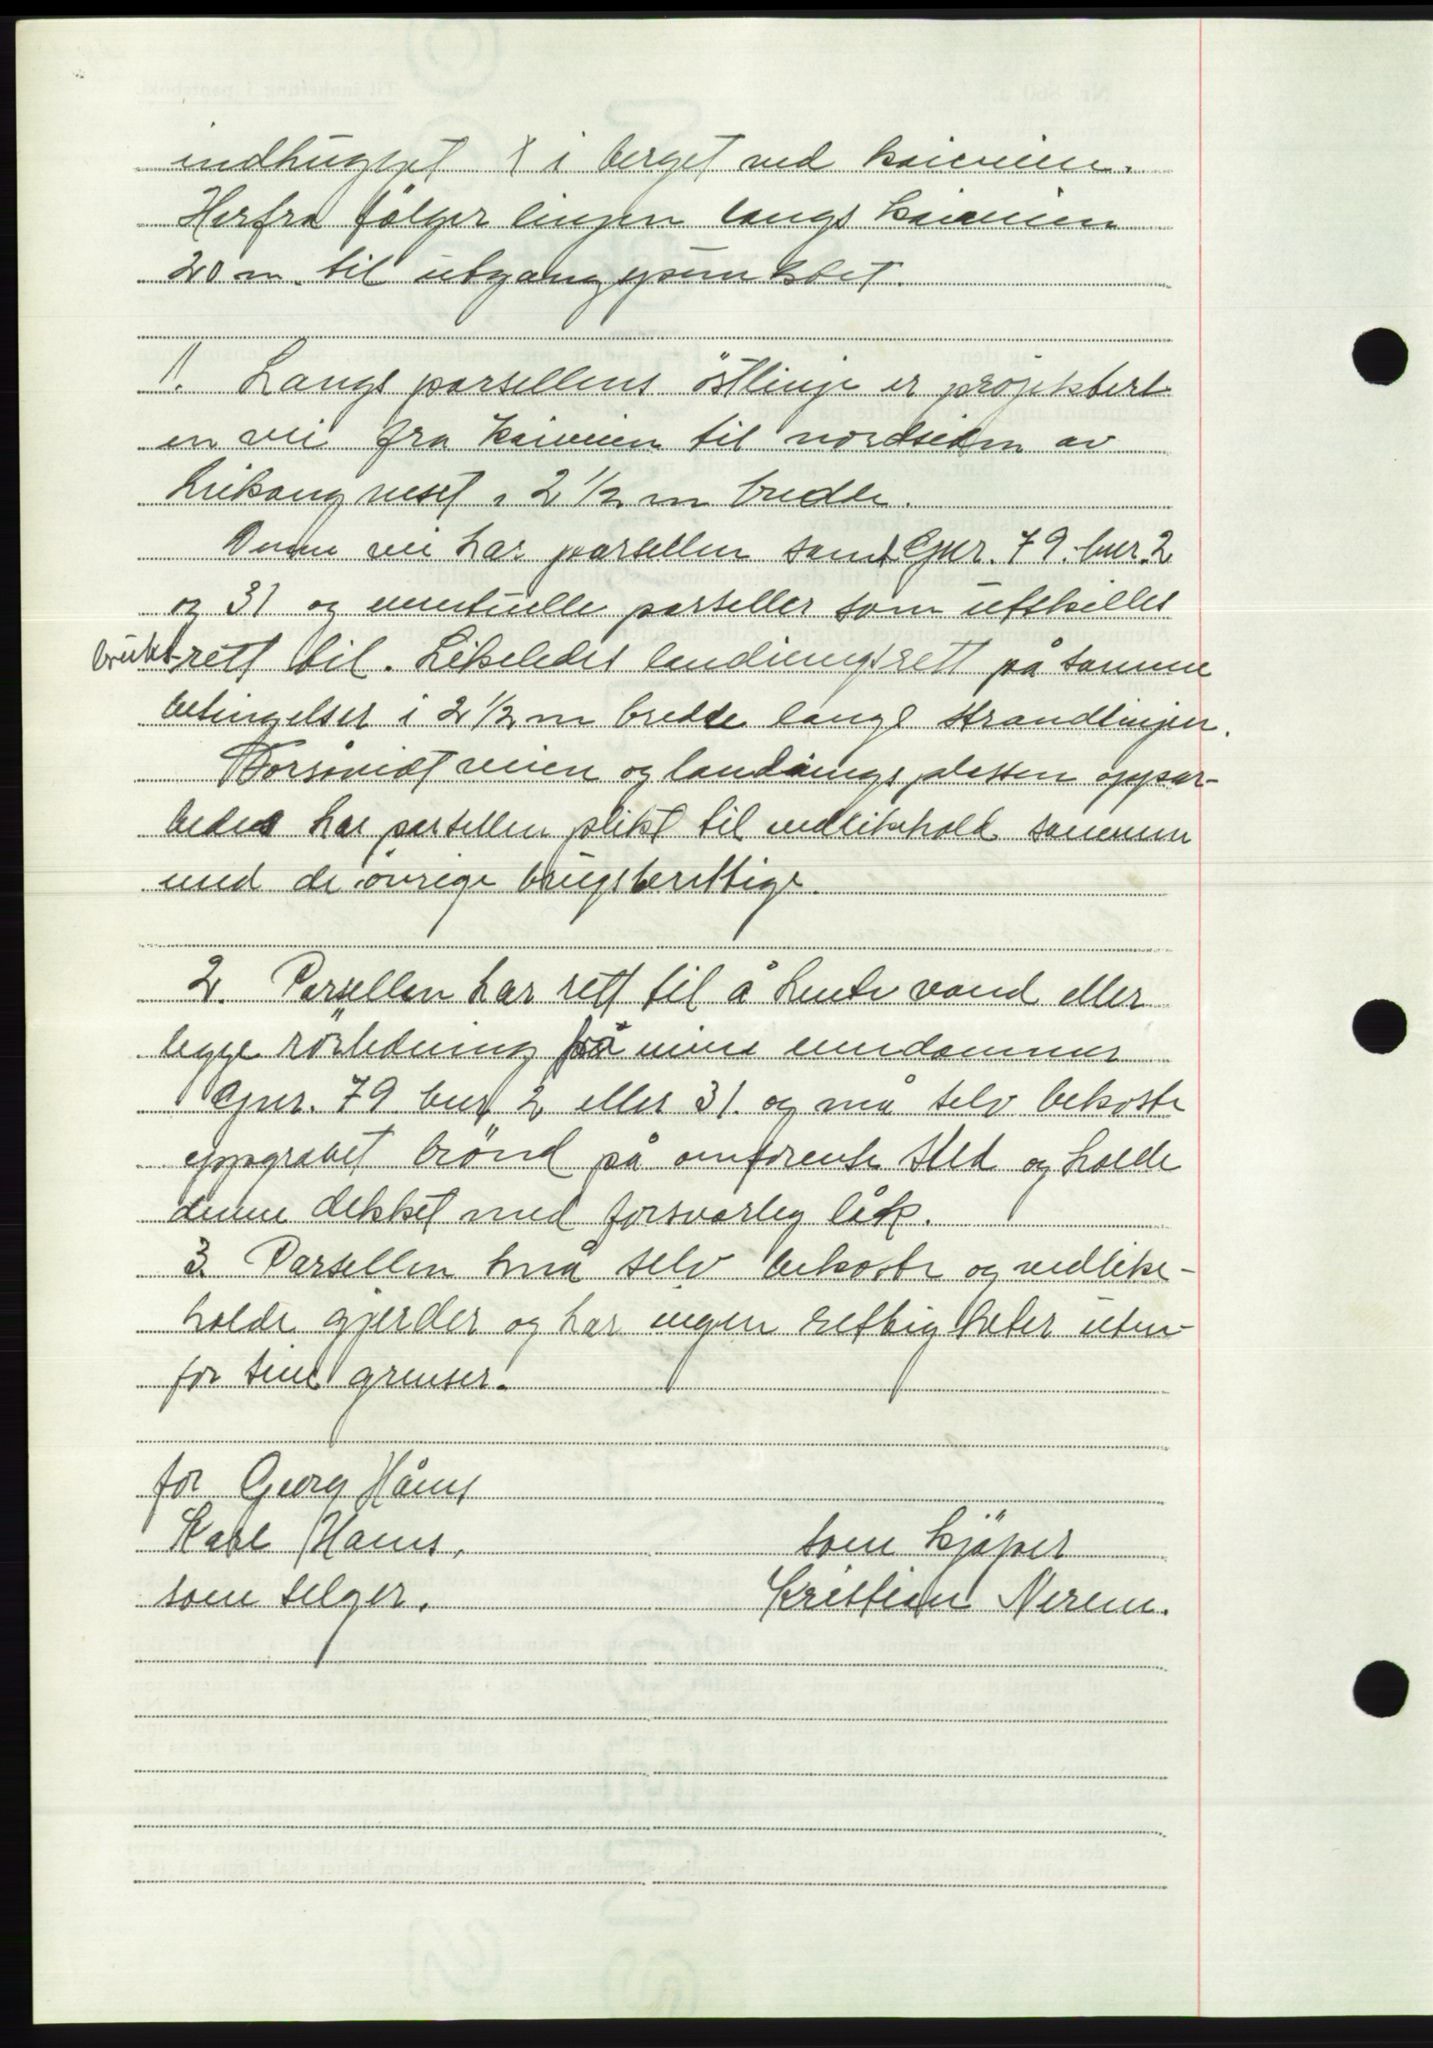 indhugget X i berget ved kaiveien.
Herfra følger linjen langs kaiveien
20 m. til utgangspunktet.
1. Langs parsellens östlinje er projektert
en vei fra kaiveien til nordsiden av
i 2 1/2 m bredde.
Denne vei har parsellen samt Gnr. 79. bnr. 2
og 31 og eventuelle parseller som utskilles
bruks-rett til. Likeledes landingsrett på samme
betingelser i 2 1/2 m bredde langs strandlinjen.
Forsåvidt veien og landingsplassen oppar-
beides har parsellen plikt til vedlikehold sammen
med de øvrige brugsberettige.
2. Parsellen har rett til å hente vand eller
legge rörledning fra mine eiendommer
Gnr. 79 bnr. 2 eller 31. og må selv bekoste
oppgravet brönd på omforente sted og holde
denne dekket med forsvarlig låk.
3. Parsellen må selv bekoste og vedlike-
holde gjerder og har ingen rettigheter uten-
for sine grenser.
for Georg Håms
Karl Hams,
som selger.
som kjöper
Kristian Nerem.